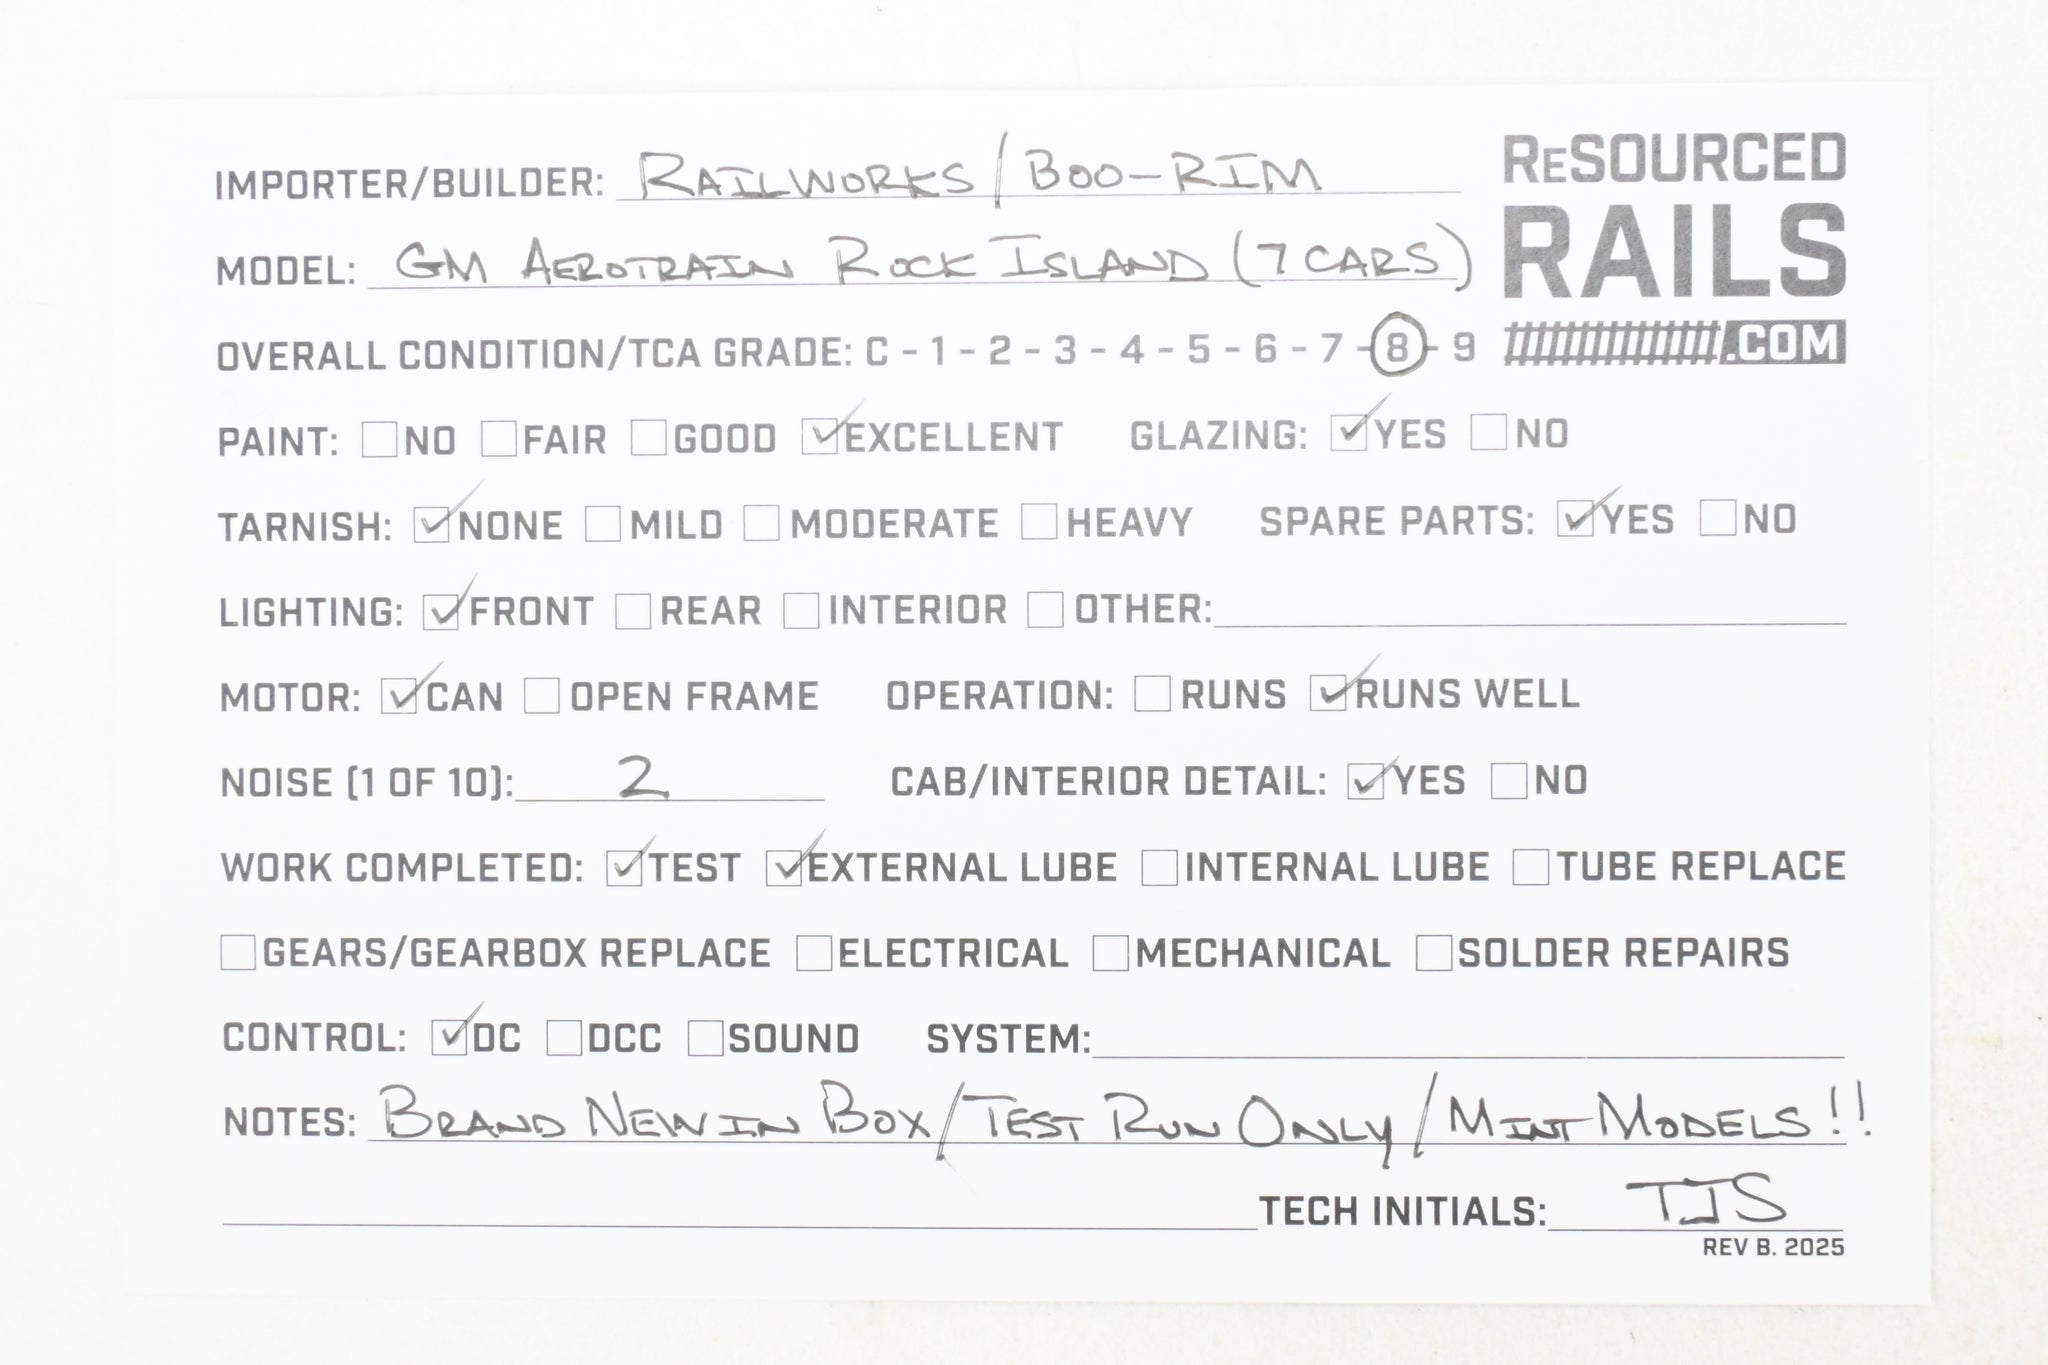 IMPORTER/BUILDER: RAILWORKS / BOO-RIM
ReSOURCED
RAILS
.COM
MODEL: GM AEROTRAIN ROCK ISLAND (7 CARS)
OVERALL CONDITION/TCA GRADE: C - 1 - 2 - 3 - 4 - 5 - 6 - 7 - 8 - 9
PAINT: NO FAIR GOOD EXCELLENT GLAZING: YES NO
TARNISH: NONE MILD MODERATE HEAVY SPARE PARTS: YES NO
LIGHTING: FRONT REAR INTERIOR OTHER:
MOTOR: CAN OPEN FRAME OPERATION: RUNS RUNS WELL
NOISE (1 OF 10): 2 CAB/INTERIOR DETAIL: YES NO
WORK COMPLETED: TEST EXTERNAL LUBE INTERNAL LUBE TUBE REPLACE
GEARS/GEARBOX REPLACE ELECTRICAL MECHANICAL SOLDER REPAIRS
CONTROL: DC DCC SOUND SYSTEM:
NOTES: BRAND NEW IN BOX / TEST RUN ONLY / MINT MODELS!!
TECH INITIALS: TJS
REV B. 2025